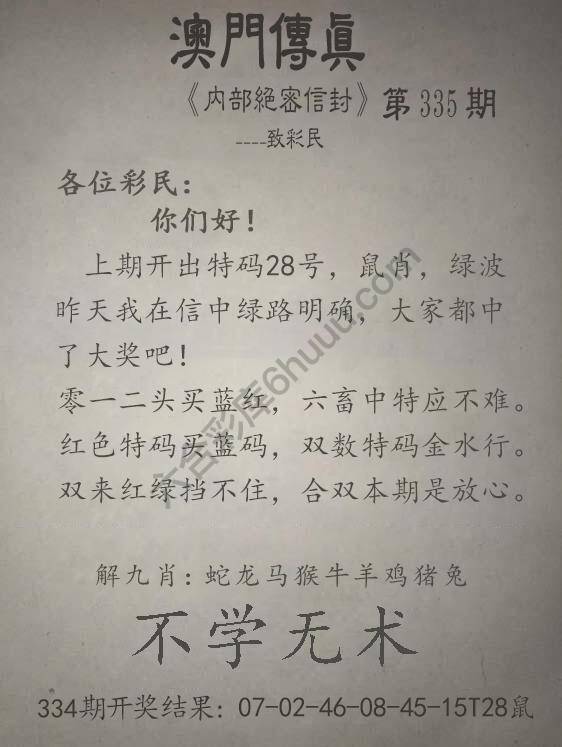 澳門傳眞
《内部絕密信封》第 335 期
----致彩民
各位彩民：
你们好！
上期开出特码28号，鼠肖，绿波
昨天我在信中绿路明确，大家都中
了大奖吧！
零一二头买蓝红，六畜中特应不难。
红色特码买蓝码，双数特码金水行。
双来红绿挡不住，合双本期是放心。
六合彩库6huuu.com
解九肖：蛇龙马猴牛羊鸡猪兔
不学无术
334期开奖结果：07-02-46-08-45-15T28鼠